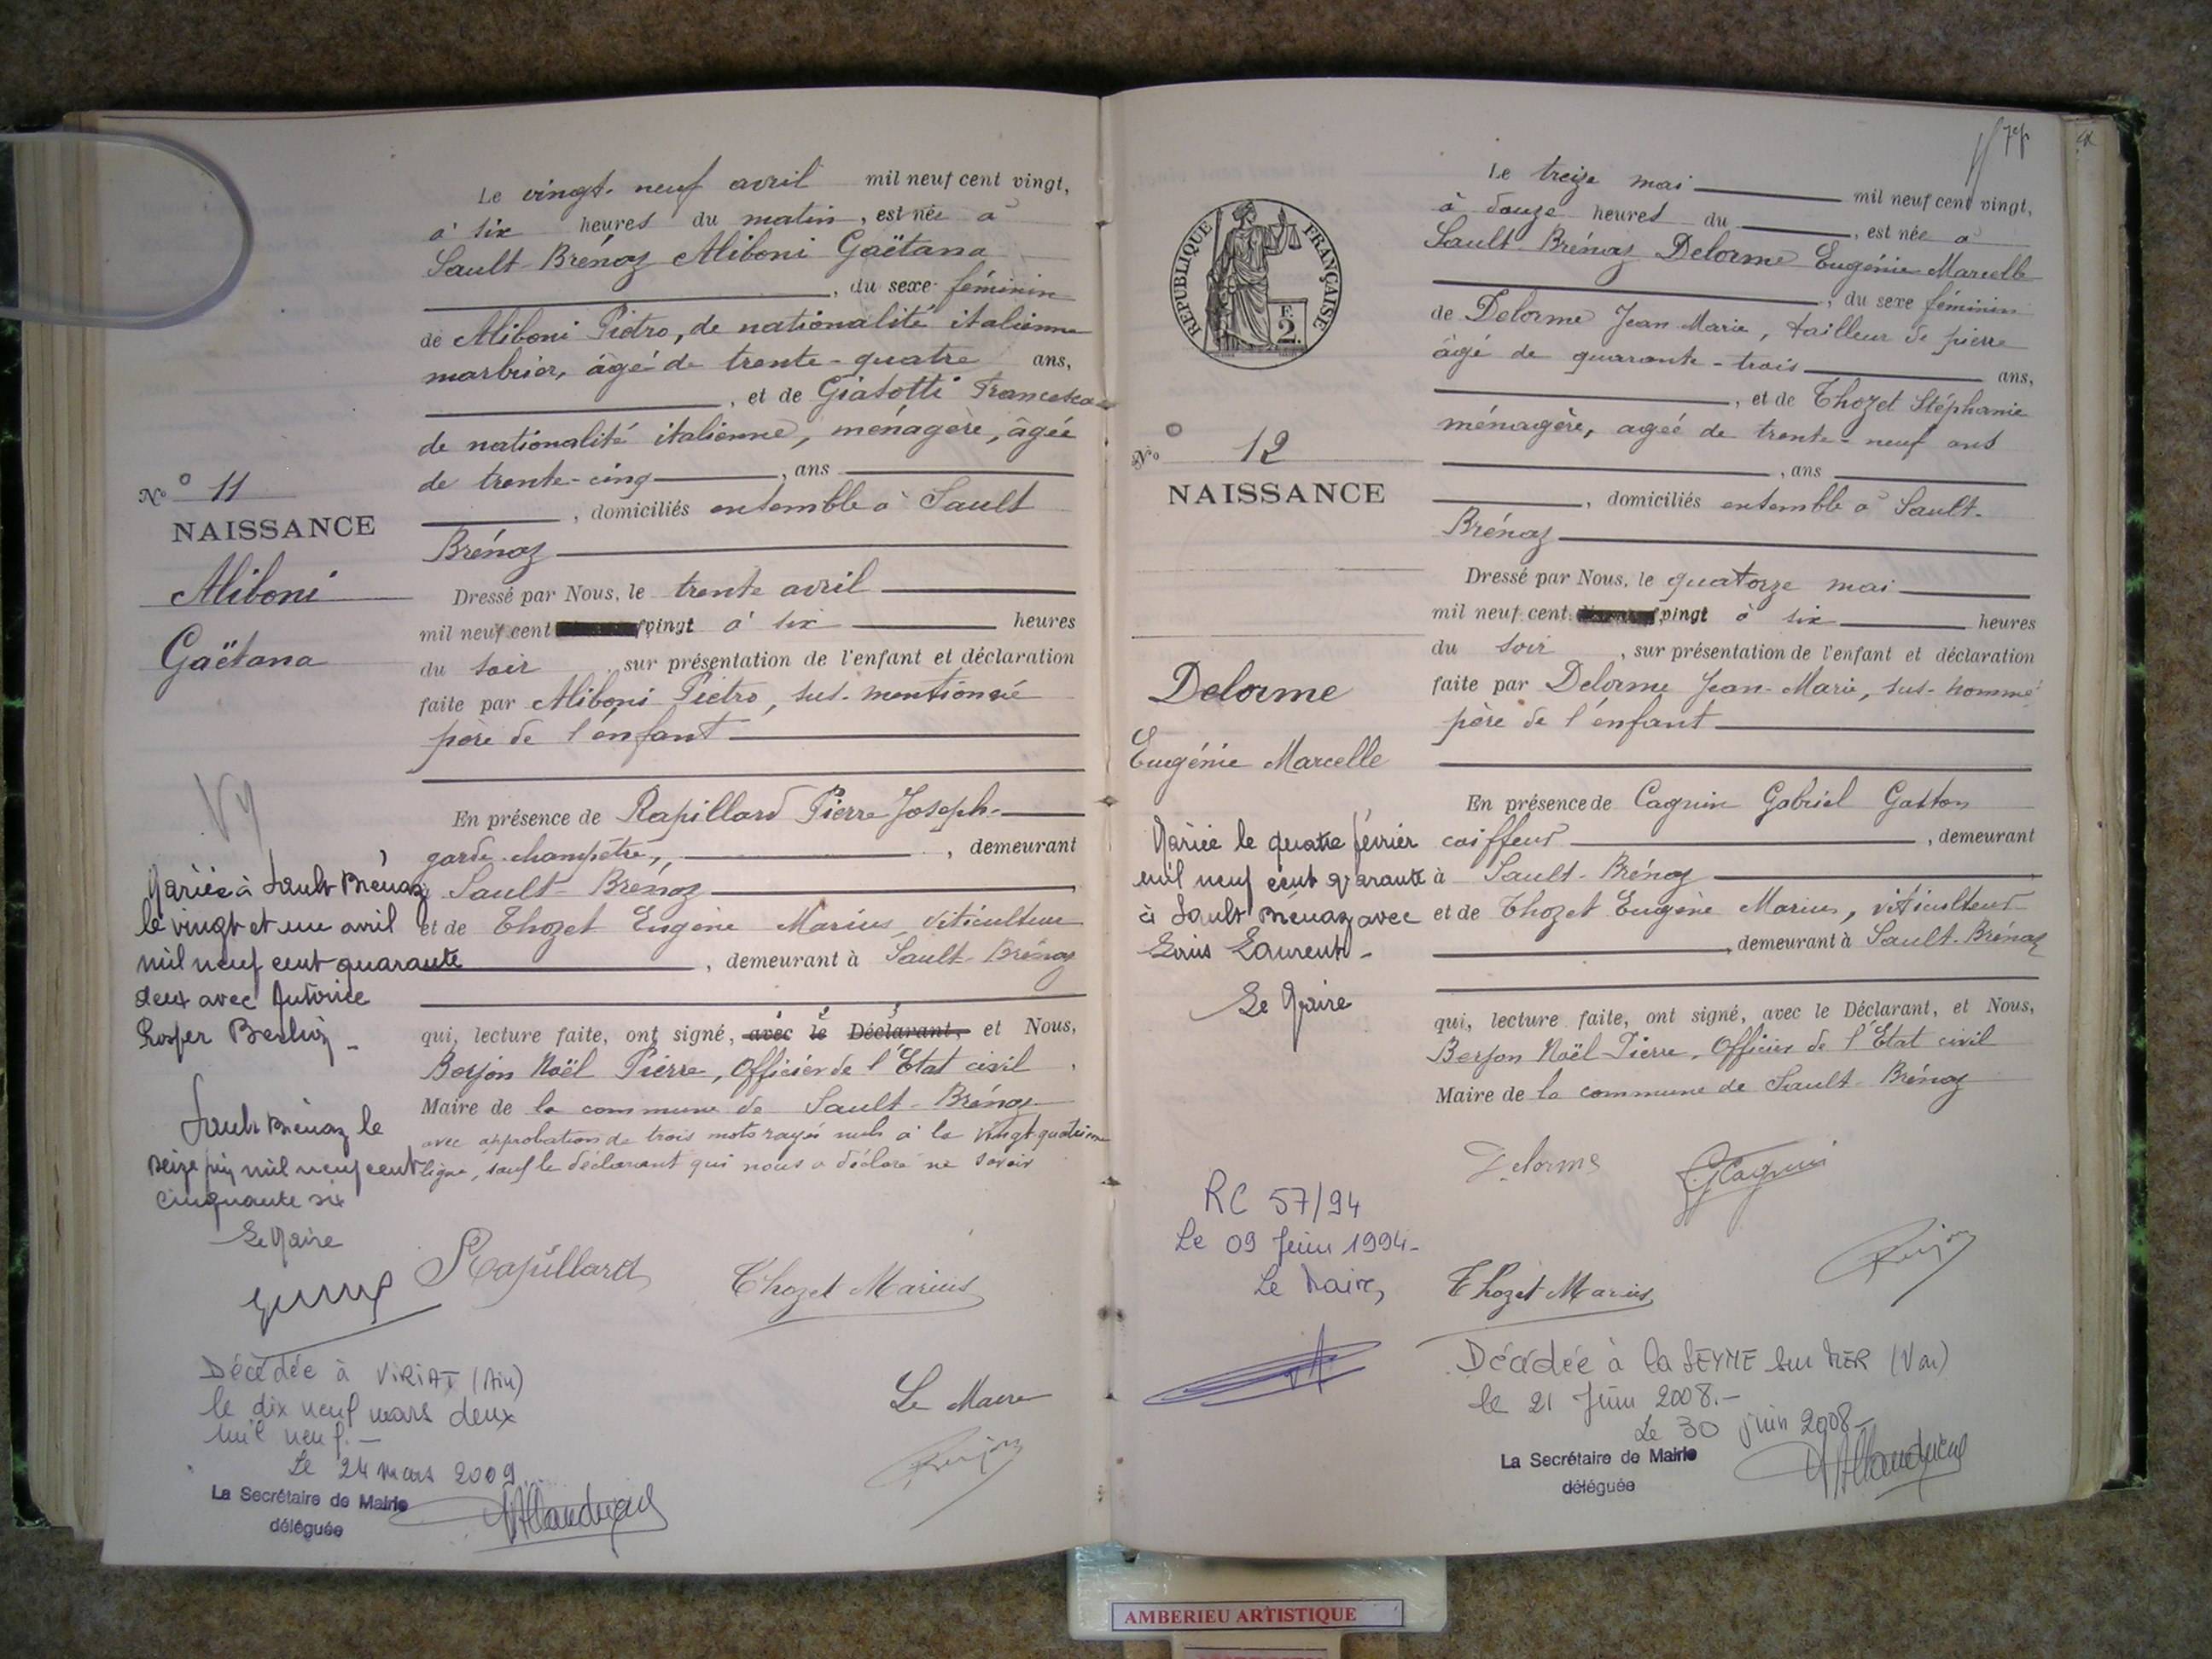 Le vingt-neuf avril mil neuf cent vingt,
à six heures du matin, est née à
Sault-Brénaz Aliboni Gaëtana
, du sexe féminin
de Aliboni Pietro, de nationalité italienne
marbrier, âgé de trente-quatre ans,
, et de Giasotti Francesca
de nationalité italienne, ménagère, âgée
de trente-cinq, ans
, domiciliés ensemble à Sault
Brénaz
Dressé par Nous, le trente avril
mil neuf cent vingt à six heures
du soir, sur présentation de l'enfant et déclaration
faite par Aliboni Pietro, sus-mentionné
père de l'enfant
En présence de Rapillard Pierre Joseph
garde-champêtre, , demeurant
Sault-Brénaz
et de Thozet Eugène Marius, viticulteur
, demeurant à Sault-Brénaz
qui, lecture faite, ont signé, avec le Déclarant, et Nous,
Berjon Noël Pierre, Officier de l'Etat civil
Maire de la commune de Sault-Brénaz
avec approbation de trois mots rayés nuls à la vingt quatrième
ligne, sauf le déclarant qui nous a déclaré ne savoir
Rapillard
Thozet Marius
Le Maire
Nº 11
NAISSANCE
Aliboni
Gaëtana
Mariée à Sault Brénaz
le vingt et un avril
mil neuf cent quarante
deux avec Antoine
Prosper
Sault Brénaz le
seize juin mil neuf cent
cinquante six
Le Maire
Décédée à VIRIAT (Ain)
le dix neuf mars deux
mil neuf.-
Le 24 mars 2009
La Secrétaire de Mairie
déléguée
RÉPUBLIQUE FRANÇAISE
F.
2.
Nº 12
NAISSANCE
Delorme
Eugénie Marcelle
Mariée le quatre février
mil neuf cent quarante
à Sault Brénaz avec
Louis Laurent-
Le Maire
RC 57/94
Le 09 Juin 1994-
Le Maire,
Le treize mai mil neuf cent vingt,
à douze heures du , est née à
Sault-Brénaz Delorme Eugénie Marcelle
, du sexe féminin
de Delorme Jean Marie, tailleur de pierre
âgé de quarante-trois ans,
, et de Thozet Stéphanie
ménagère, agée de trente-neuf ans
, ans
, domiciliés ensemble à Sault-
Brénaz
Dressé par Nous, le quatorze mai
mil neuf cent vingt à six heures
du soir, sur présentation de l'enfant et déclaration
faite par Delorme Jean-Marie, sus-nommé
père de l'enfant
En présence de Cagnin Gabriel Gaston
coiffeur, demeurant
à Sault-Brénaz
et de Thozet Eugène Marius, viticulteur
, demeurant à Sault-Brénaz
qui, lecture faite, ont signé, avec le Déclarant, et Nous,
Berjon Noël Pierre, Officier de l'Etat civil
Maire de la commune de Sault-Brénaz
Delorme
GCagnin
Thozet Marius
Décédée à la SEYNE sur MER (Var)
le 21 Juin 2008.-
Le 30 juin 2008-
La Secrétaire de Mairie
déléguée
AMBERIEU ARTISTIQUE